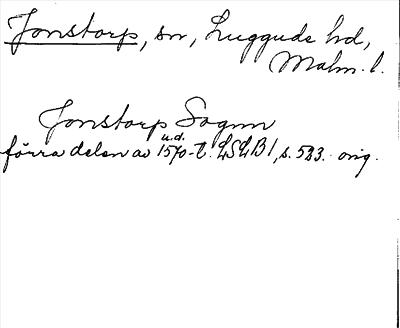 Jonstorp, sn, Luggude hd,
Malm. l.
Jonstorp Sognn
u.d.
förra delen av 1570-t. LSLB1, s. 523. orig.